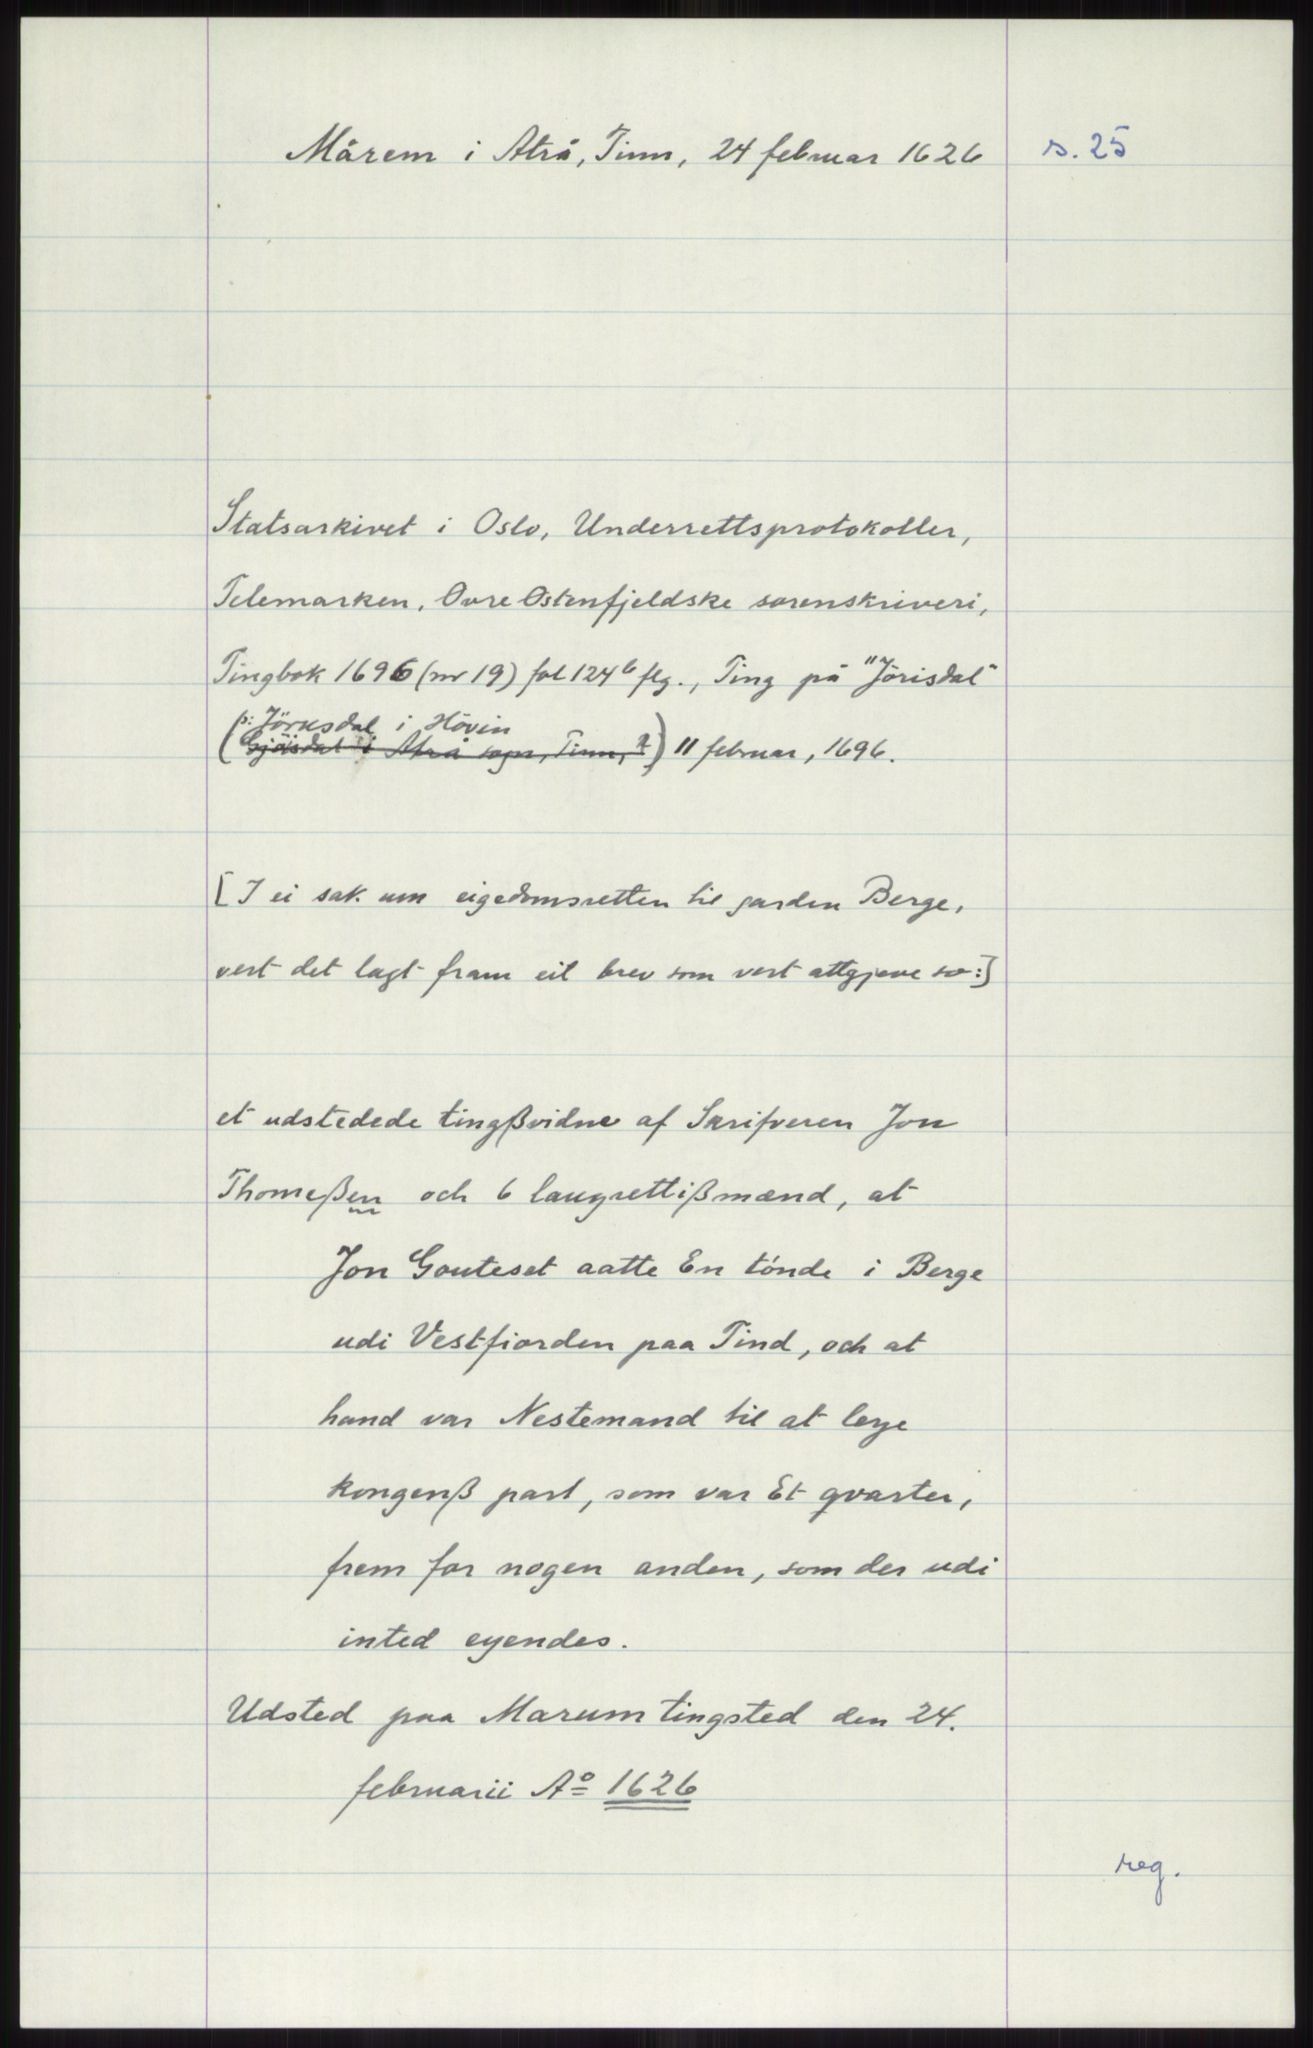 Mårem i Atrå, Tinn, 24 februar 1626
s. 25
Statsarkivet i Oslo, Underrettsprotokoller,
Telemarken, Øvre Østenfjeldske sorenskriveri,
Tingbok 1696 (nr 19) fol 124b flg., Ting på "Jörisdal"
(ɔ: Jörusdal i Hövin
Gjöisdal i Atrå sogn, Tinn, ?) 11 februar, 1696.
[I ei sak um eigedomsretten til garden Berge,
vert det lagt fram eit brev som vert attgjeve so:]
et udstedede tingßvidne af Skrifveren Jon
Thomeßen och 6 laugrettißmænd, at
Jon Gouteset aatte En tönde i Berge
udi Vestfiorden paa Tind, och at
hand var Nestemand til at leye
kongenß part, som var Et qvarter,
frem for nogen anden, som der udi
inted eyendes.
Udsted paa Marum tingsted den 24.
februarii Aº 1626
reg.